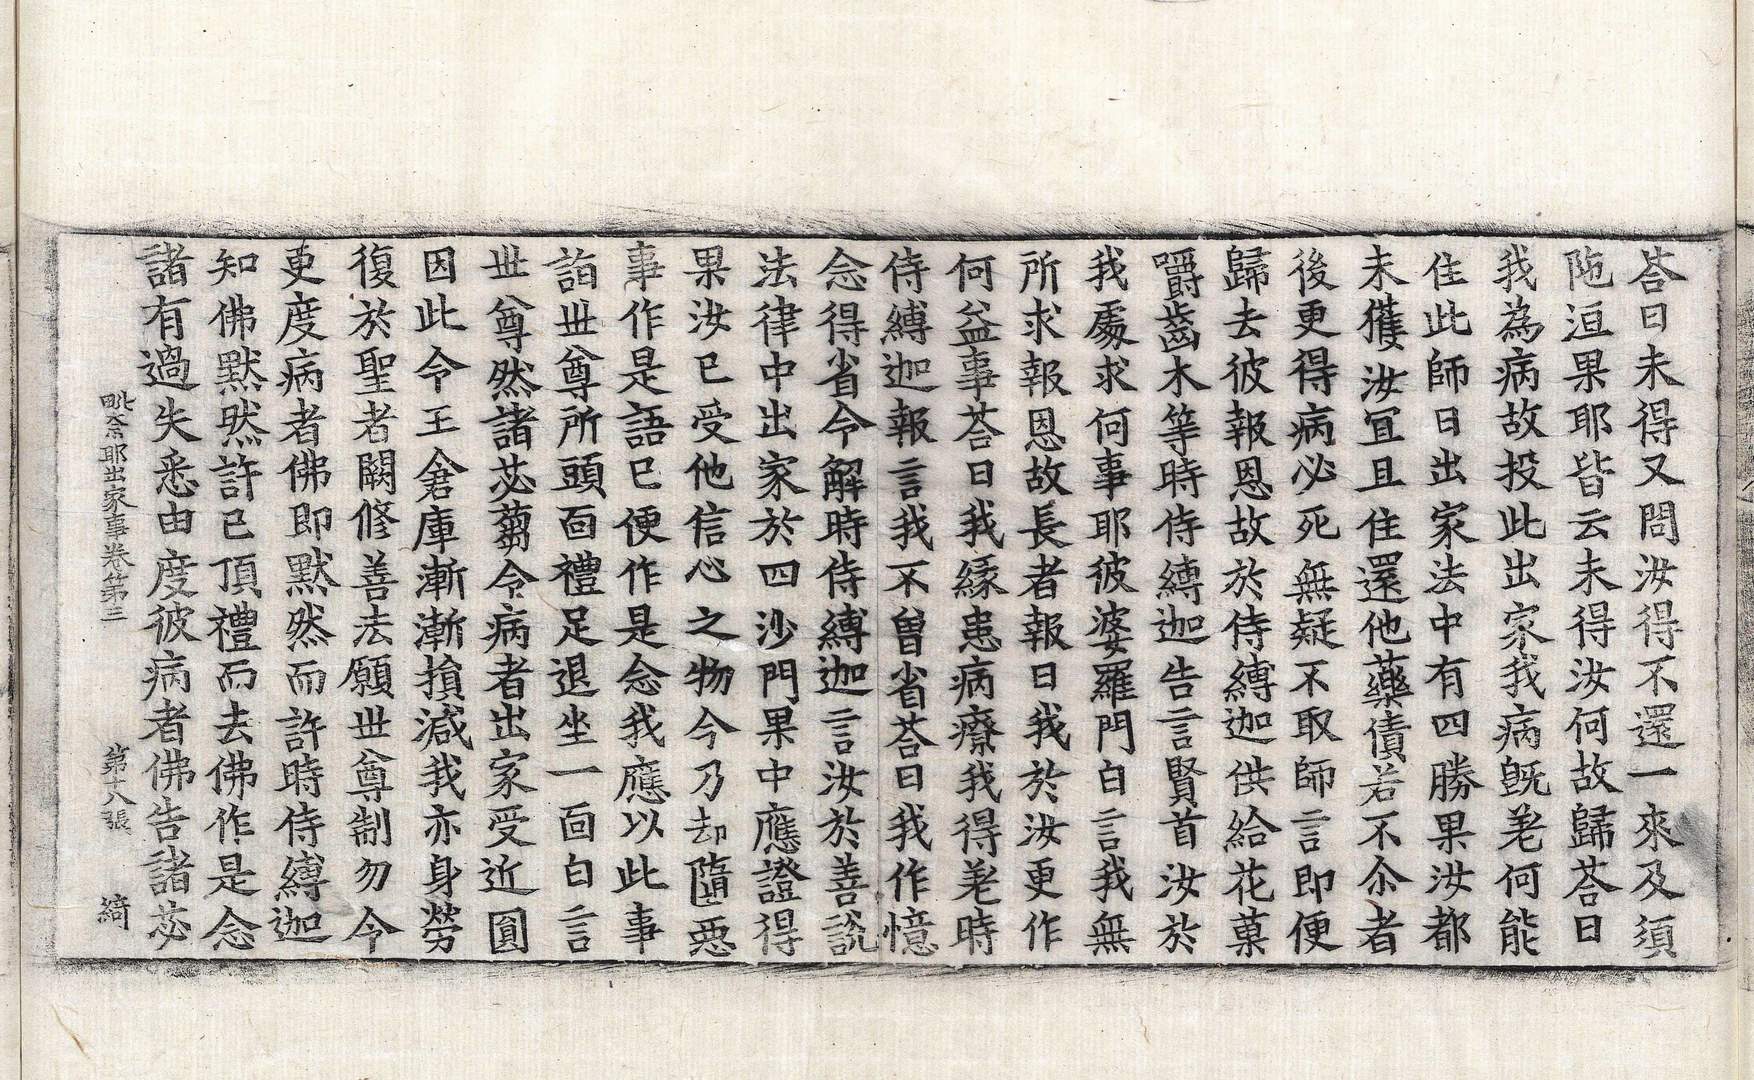 荅曰未得又問汝得不還一來及須
陁洹果耶皆云未得汝何故歸荅曰
我為病故投此出家我病旣差何能
住此師曰出家法中有四勝果汝都
未獲汝冝且住還他藥債若不尒者
後更得病必死無疑不取師言即便
歸去彼報恩故於侍縛迦供給花菓
嚼齒木等時侍縛迦告言賢首汝於
我處求何事耶彼婆羅門白言我無
所求報恩故長者報曰我於汝更作
何益事荅曰我緣患病療我得差時
侍縛迦報言我不曽省荅曰我作憶
念得省令解時侍縛迦言汝於善說
法律中出家於四沙門果中應證得
果汝已受他信心之物今乃却墮惡
事作是語已便作是念我應以此事
詣世尊所頭面禮足退坐一面白言
世尊然諸苾蒭令病者出家受近圓
因此令王倉庫漸漸損減我亦身勞
復於聖者闕修善法願世尊制勿令
更度病者佛即默然而許時侍縛迦
知佛默然許已頂禮而去佛作是念
諸有過失悉由度彼病者佛告諸苾
毗奈耶出家事卷第三 第十八張 綺